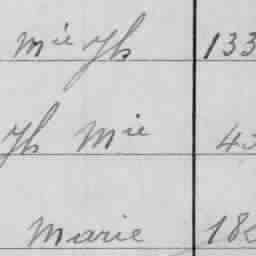 Mie Jh 133
Jh Mie 43
Marie 18